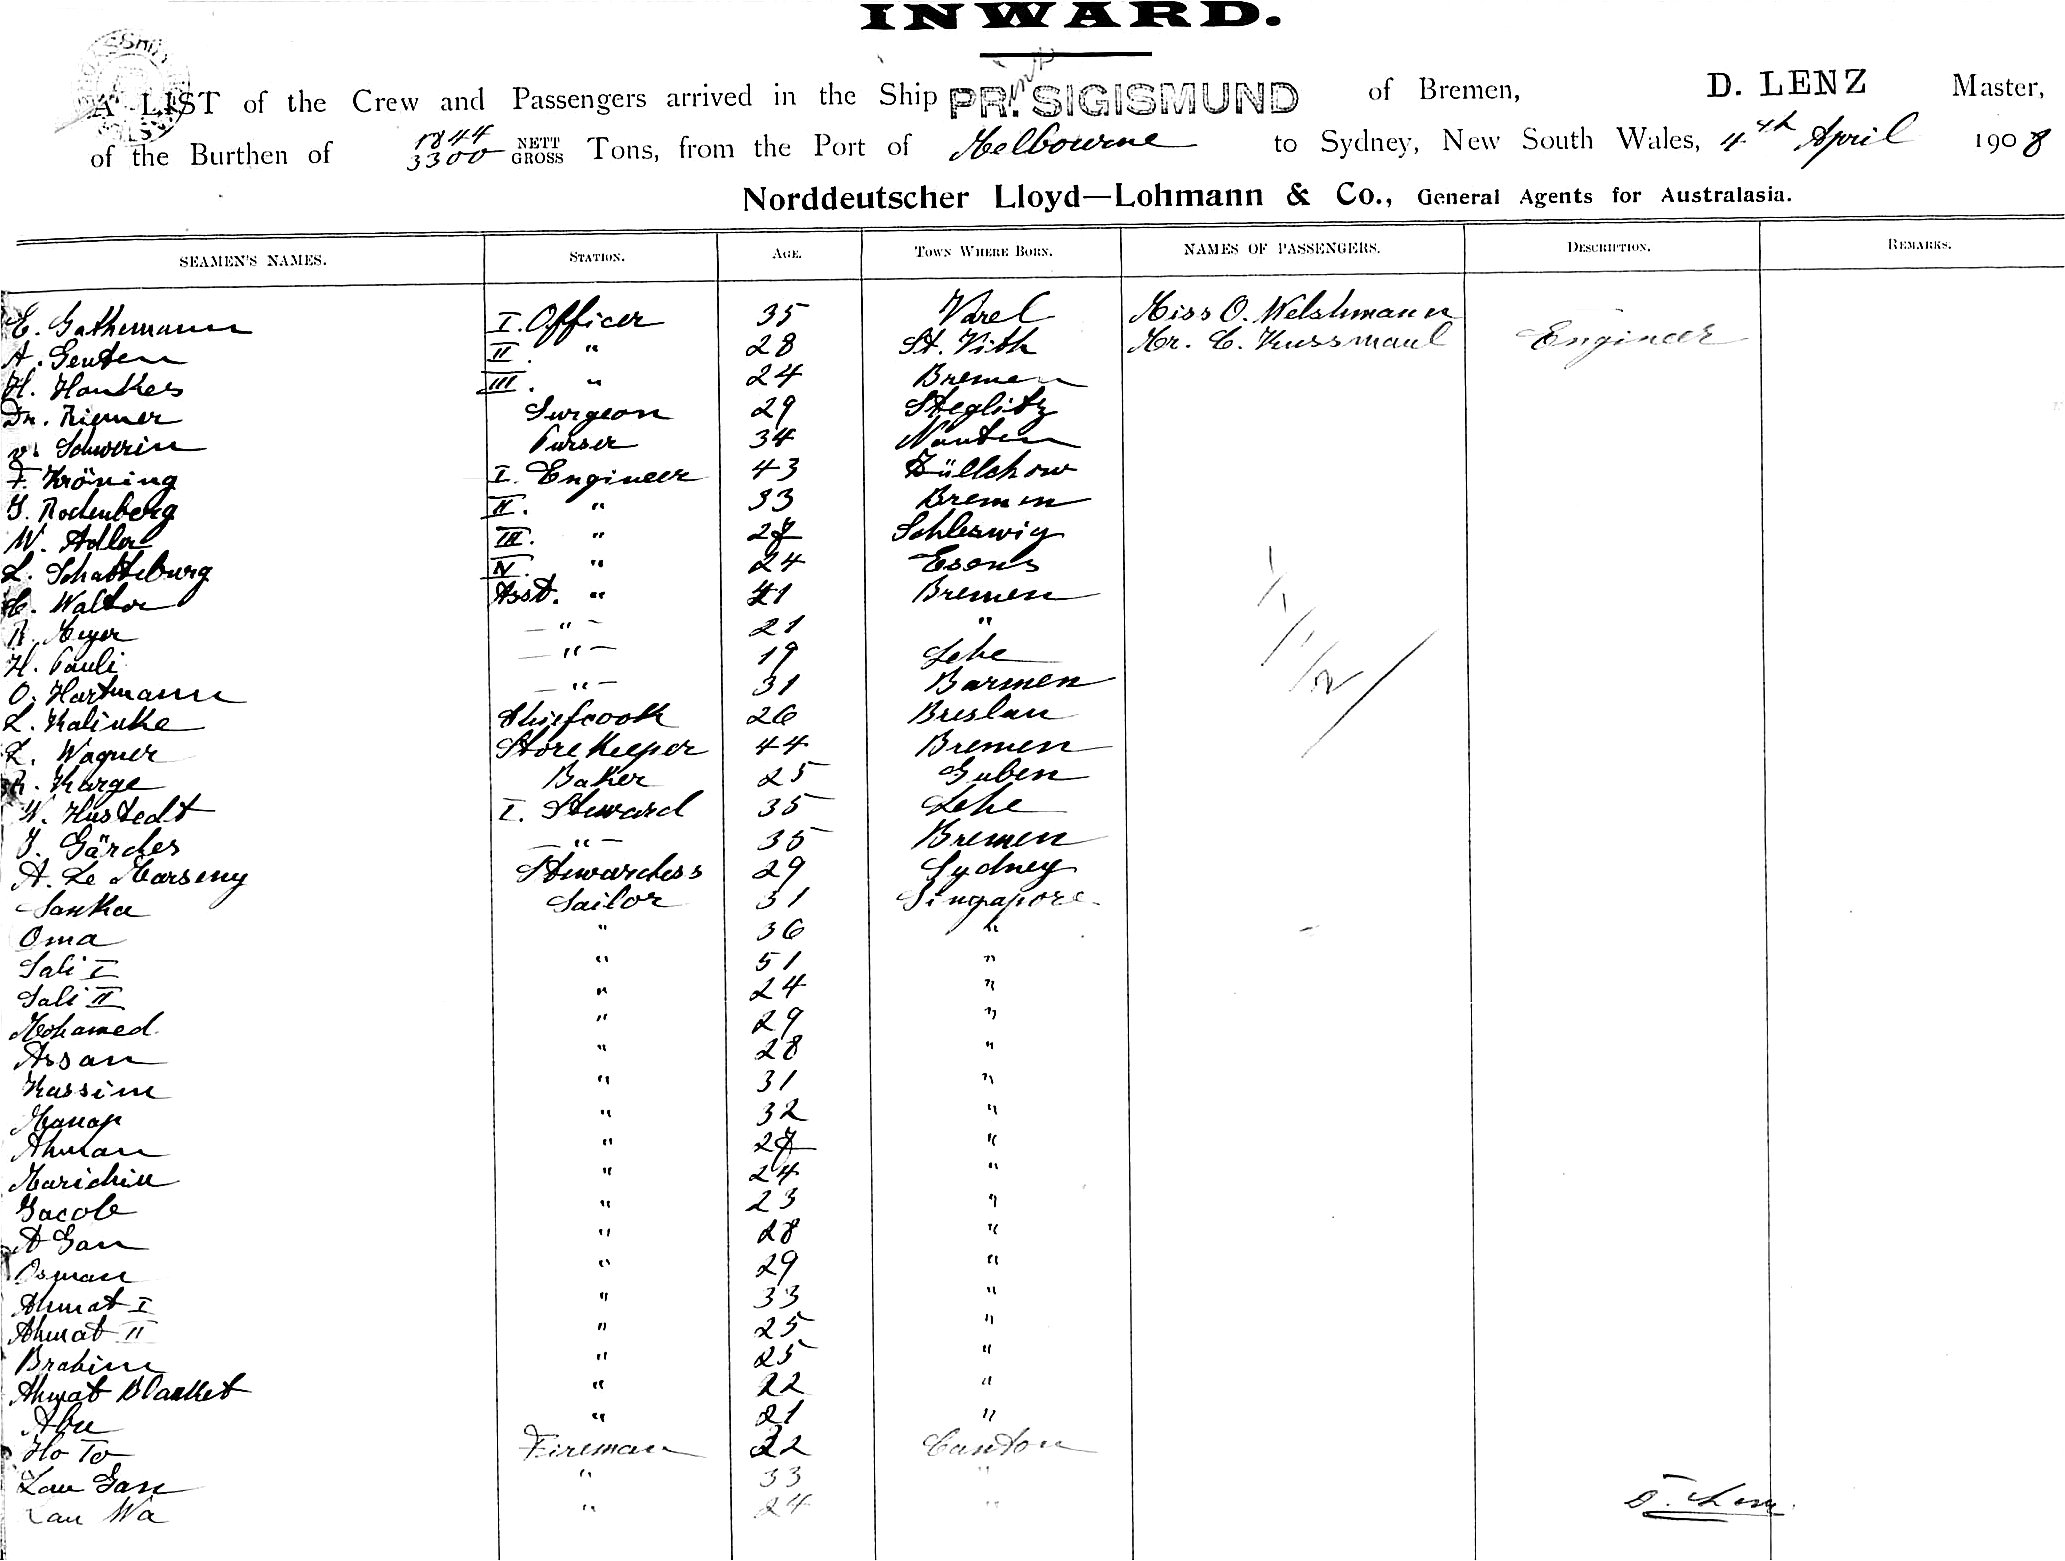 INWARD.
A LIST of the Crew and Passengers arrived in the Ship PR. SIGISMUND of Bremen, D. LENZ Master,
of the Burthen of 1844 NETT 3300 GROSS Tons, from the Port of Melbourne to Sydney, New South Wales, 4th April 1908
Norddeutscher Lloyd—Lohmann & Co., General Agents for Australasia.
SEAMEN'S NAMES. STATION. AGE. TOWN WHERE BORN. NAMES OF PASSENGERS. DESCRIPTION. REMARKS.
E. Gathemann I. Officer 35 Varel Miss O. Welshmann
A. Genten II. " 28 St. Vith Mr. C. Kussmaul Engineer
H. Hankes III. " 24 Bremen
Dr. Riemer Surgeon 29 Steglitz
v. Schwerin Purser 34 Nauten
F. Kröning I. Engineer 43 Züllchow
J. Rodenberg II. " 33 Bremen
W. Adler III. " 27 Schleswig
L. Schatteburg IV. " 24 Esens
C. Walter Asst. " 21 Bremen
R. Meyer " 21 "
H. Pauli " 19 Lehe
O. Hartmann " 31 Barmen
L. Kalinke Chiefcook 26 Breslau
L. Wagner Storekeeper 44 Bremen
R. Karge Baker 25 Guben
W. Hustedt I. Steward 35 Lehe
J. Gärdes " 35 Bremen
A. Le Marseny Stewardess 29 Sydney
Sanka Sailor 31 Singapore
Oma " 36 "
Sali I " 51 "
Sali II " 24 "
Mohamed " 29 "
Assan " 28 "
Kassim " 31 "
Manap " 32 "
Ahman " 27 "
Marichin " 24 "
Jacob " 23 "
A Gan " 28 "
Osman " 29 "
Ahmat I " 33 "
Ahmat II " 25 "
Brahim " 25 "
Ahmat Blanket " 22 "
Abu " 21 "
Ho To Fireman 22 Canton
Lau Gan " 33 "
Lau Wa " 24 "